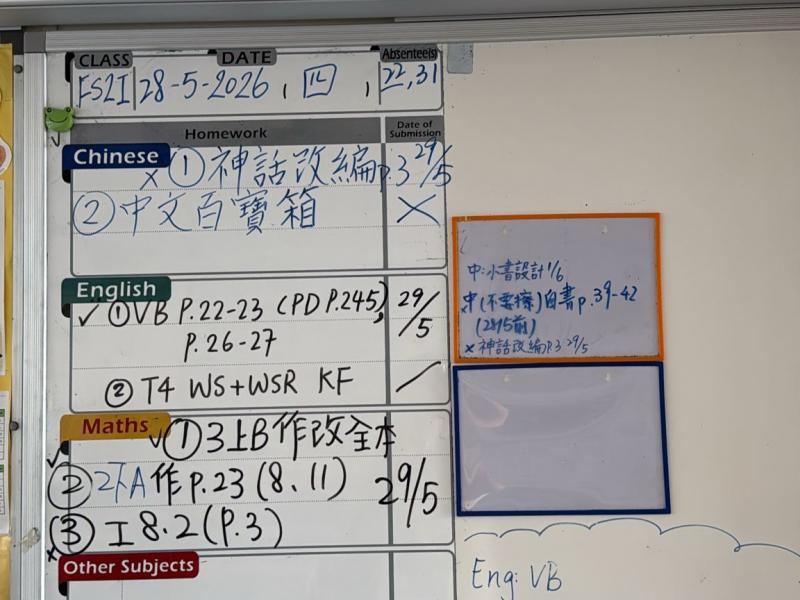 CLASS DATE Absentee(s)
28-5-2026, 四, 22,31
Homework Date of Submission
Chinese
x ① 神話改編p.3 29/5
② 中文百寶箱 ×
English
✓ ① VB P.22-23 (PD P.245), 29/5
P.26-27
② T4 WS+WSR KF /
Maths
✓ ① 3上B作改全本
② 2下A 作 p.23 (8、11) 29/5
③ 工 8.2 (P.3)
Other Subjects
中:小書設計 1/6
中(不要擦)自書p.39-42
(28/5前)
× 神話改編p.3 29/5
Eng: VB